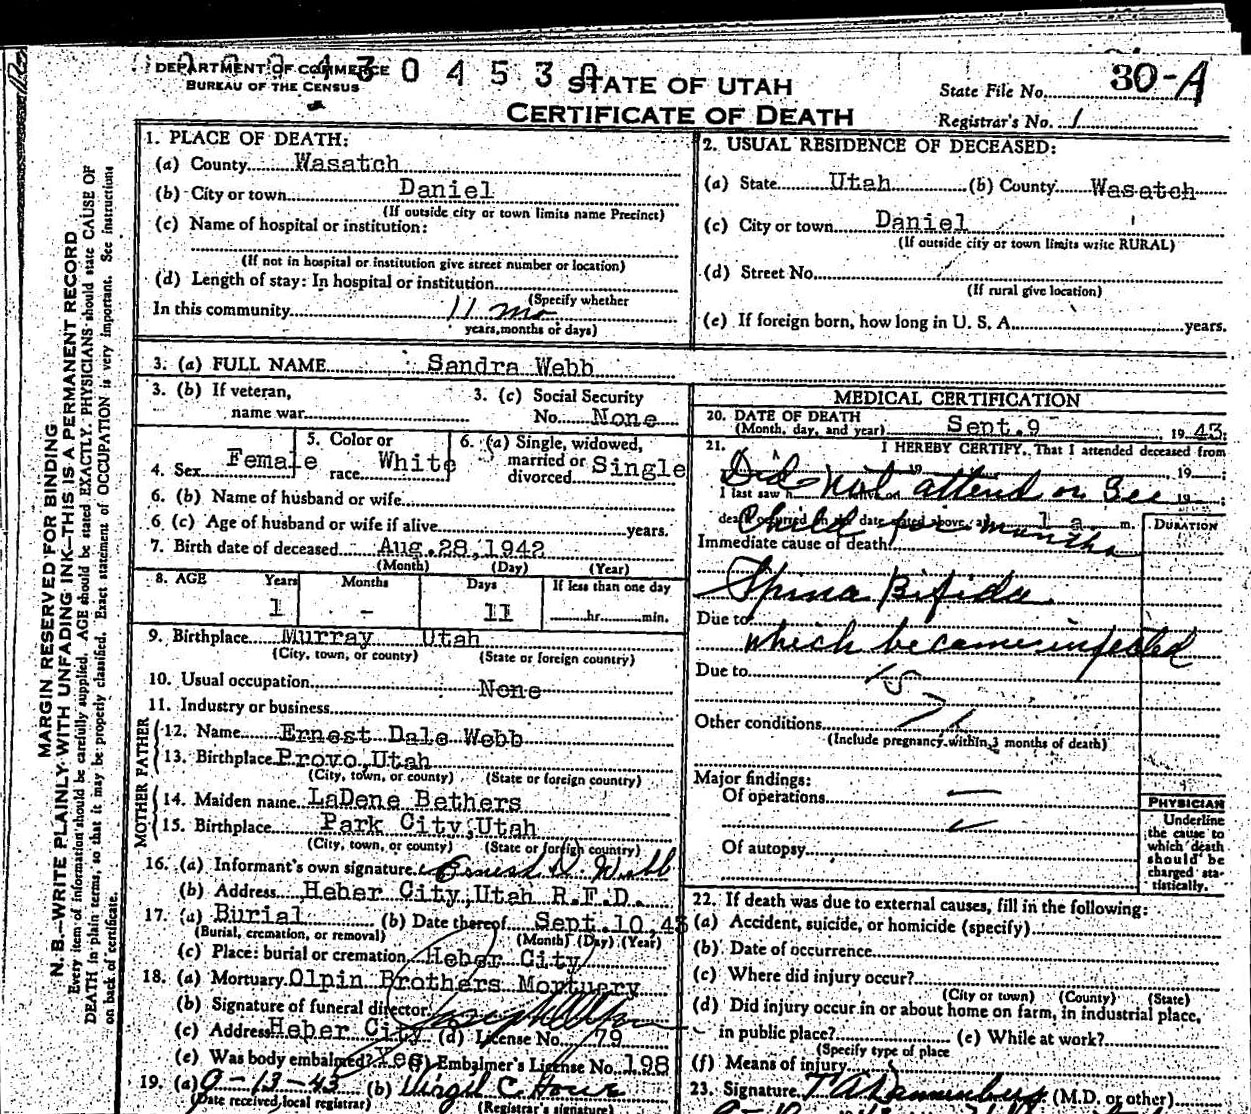 DEPARTMENT OF COMMERCE
BUREAU OF THE CENSUS
0 4 5 3 0
STATE OF UTAH
CERTIFICATE OF DEATH
State File No. 30-A
Registrar's No. 1
MARGIN RESERVED FOR BINDING
N. B.—WRITE PLAINLY WITH UNFADING INK—THIS IS A PERMANENT RECORD
Every item of information should be carefully supplied. AGE should be stated EXACTLY. PHYSICIANS should state CAUSE OF
DEATH in plain terms, so that it may be properly classified. Exact statement of OCCUPATION is very important. See instructions
on back of certificate.
1. PLACE OF DEATH:
(a) County Wasatch
(b) City or town Daniel
(If outside city or town limits name Precinct)
(c) Name of hospital or institution:
(If not in hospital or institution give street number or location)
(d) Length of stay: In hospital or institution
(Specify whether
In this community 11 mo
years, months or days)
2. USUAL RESIDENCE OF DECEASED:
(a) State Utah (b) County Wasatch
(c) City or town Daniel
(If outside city or town limits write RURAL)
(d) Street No.
(If rural give location)
(e) If foreign born, how long in U. S. A. years.
3. (a) FULL NAME Sandra Webb
3. (b) If veteran,
name war
3. (c) Social Security
No. None
4. Sex Female
5. Color or
race White
6. (a) Single, widowed,
married or
divorced Single
6. (b) Name of husband or wife
6. (c) Age of husband or wife if alive years.
7. Birth date of deceased Aug. 28, 1942
(Month) (Day) (Year)
8. AGE Years Months Days If less than one day
1 - 11 hr. min.
9. Birthplace Murray Utah
(City, town, or county) (State or foreign country)
10. Usual occupation None
11. Industry or business
FATHER
12. Name Ernest Dale Webb
13. Birthplace Provo, Utah
(City, town, or county) (State or foreign country)
MOTHER
14. Maiden name LaDene Bethers
15. Birthplace Park City, Utah
(City, town, or county) (State or foreign country)
16. (a) Informant's own signature Ernest D. Webb
(b) Address Heber City, Utah R.F.D.
17. (a) Burial (b) Date thereof Sept. 10, 43
(Burial, cremation, or removal) (Month) (Day) (Year)
(c) Place: burial or cremation Heber City
18. (a) Mortuary Olpin Brothers Mortuary
(b) Signature of funeral director
(c) Address Heber City (d) License No. 79
(e) Was body embalmed? Yes (f) Embalmer's License No. 198
19. (a) 9-13-43 (b) Virgil C.
(Date received local registrar) (Registrar's signature)
MEDICAL CERTIFICATION
20. DATE OF DEATH
(Month, day, and year) Sept. 9 19 43;
21. I HEREBY CERTIFY, That I attended deceased from
Did not attend or see
child for months
I last saw h alive on 19
death occurred on the date stated above, at 1 a. m.
DURATION
Immediate cause of death
Spina Bifida
Due to
which became infected
Due to
Other conditions
(Include pregnancy within 3 months of death)
Major findings:
Of operations
Of autopsy
PHYSICIAN
Underline
the cause to
which death
should be
charged sta-
tistically.
22. If death was due to external causes, fill in the following:
(a) Accident, suicide, or homicide (specify)
(b) Date of occurrence
(c) Where did injury occur?
(City or town) (County) (State)
(d) Did injury occur in or about home on farm, in industrial place,
in public place? (e) While at work?
(Specify type of place
(f) Means of injury
23. Signature T A Dannenberg (M.D. or other)